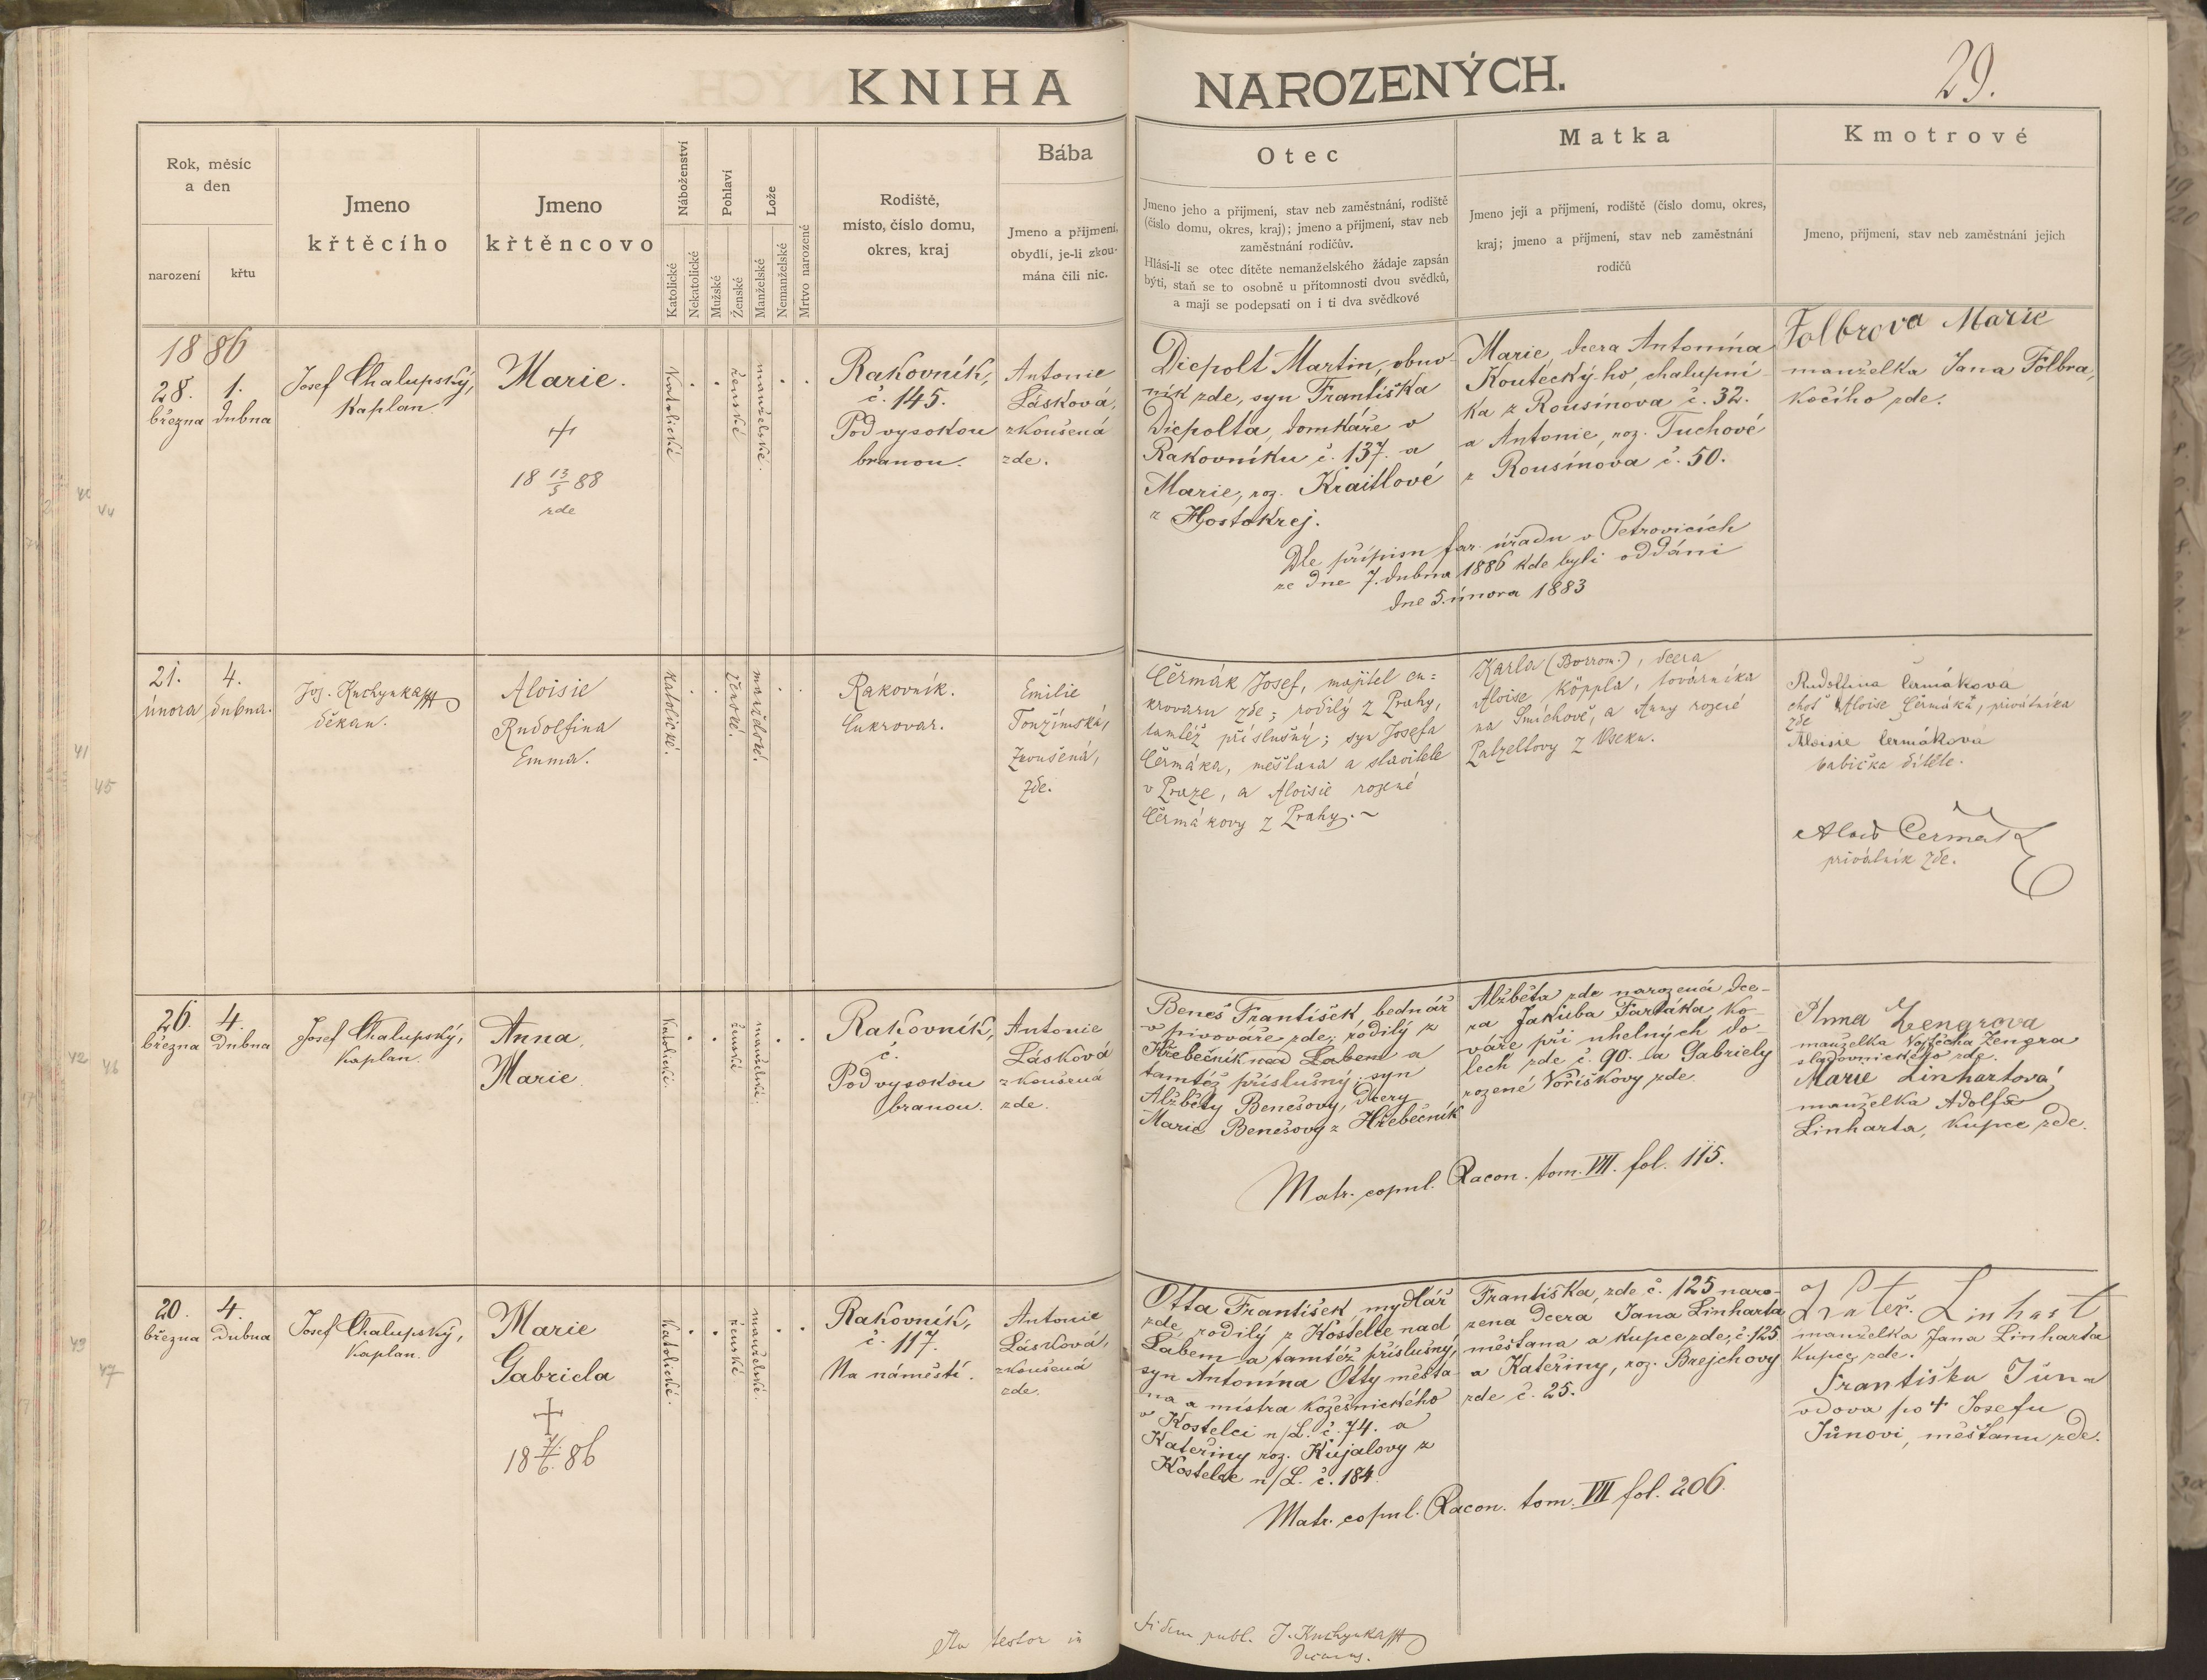 KNIHA NAROZENÝCH.
29.
Rok, měsíc
a den
narození
křtu
Jmeno
křtěcího
Jmeno
křtěncovo
Náboženství
Katolické
Nekatolické
Pohlaví
Mužské
Ženské
Lože
Manželské
Nemanželské
Mrtvo narozené
Rodiště,
místo, číslo domu,
okres, kraj
Bába
Jmeno a přijmení,
obydlí, je-li zkou-
mána čili nic.
Otec
Jmeno jeho a přijmení, stav neb zaměstnání, rodiště
(číslo domu, okres, kraj); jmeno a přijmení, stav neb
zaměstnání rodičův.
Hlásí-li se otec dítěte nemanželského žádaje zapsán
býti, staň se to osobně u přítomnosti dvou svědků,
a mají se podepsati on i ti dva svědkové
Matka
Jmeno její a přijmení, rodiště (číslo domu, okres,
kraj; jmeno a přijmení, stav neb zaměstnání
rodičů
Kmotrové
Jmeno, přijmení, stav neb zaměstnání jejich
1886
28.
března
1.
dubna
Josef Chalupský,
Kaplan.
Marie.
+
18 13/5 88
zde
Katolické
ženské
manželské.
Rakovník,
č. 145.
Pod vysokou
branou.
Antonie
Lásková,
zkoušená
zde.
Diepolt Martin, obuv-
ník zde, syn Františka
Diepolta, domkáře v
Rakovníku č. 137. a
Marie, roz. Kraitlové
z Hostokrej.
Marie, dcera Antonína
Kouteckýho, chalupní-
ka z Rousínova č. 32.
a Antonie, roz. Tuchové
z Rousínova č. 50.
Dle přípisu far. úřadu v Petrovicích
ze dne 7. dubna 1886 kde byli oddáni
dne 5. února 1883
Folbrova Marie
manželka Jana Folbra,
kočího zde.
21.
února
4.
dubna.
Jos. Kuchynka
děkan.
Aloisie
Rudolfina
Emma.
Katolické.
ženské.
manželské.
Rakovník.
Cukrovar.
Emilie
Zkoušená,
zde.
Čermák Josef, majitel cu=
krovaru zde; rodilý z Prahy,
tamtéž příslušný; syn Josefa
Čermáka, měšťana a stavitele
v Praze, a Aloisie rozené
Čermákovy z Prahy.
Karla (Borrom.), dcera
Aloise Köppla, továrníka
na Smíchově, a Anny rozené
Patzeltovy z Oseku.
Rudolfina Čermáková
choť Aloise Čermáka, privátníka
zde
Aloisie Čermáková
babička dítěte.
Alois Čermák
privátník zde.
26.
března
4.
dubna
Josef Chalupský,
kaplan.
Anna,
Marie.
Katolické.
ženské
manželské.
Rakovník,
č.
Pod vysokou
branou.
Antonie
Lásková
zkoušená
zde.
Beneš František, bednář
v pivováře zde, rodilý z
Hřebečník nad Labem a
tamtéž příslušný; syn
Alžběty Benešovy, dcery
Marie Benešovy z Hřebečník
Alžběta zde narozená dce-
ra Jakuba Farťáka, ko-
váře při uhelných do-
lech zde č. 90. a Gabriely
rozené Voříškovy zde.
Matr. copul. Racon. tom. VII. fol. 115.
Anna Zengrova
manželka Vojtěcha Zengra
sladovnického zde.
Marie Linhartová
manželka Adolfa
Linharta, kupce zde.
20.
března
4.
dubna
Josef Chalupský,
kaplan.
Marie
Gabriela
+
86
Katolické.
ženské
manželské.
Rakovník,
č. 117.
Na náměstí.
Antonie
Lásková,
zkoušená
zde.
Otta František, mydlář
zde, rodilý z Kostelce nad
Labem a tamtéž příslušný,
syn Antonína Otty měšťa-
na a mistra kožešnického
v Kostelci n/L. č. 74. a
Kateřiny roz. Kujalovy z
Kostelce n/L. č. 184.
Františka, zde č. 125 naro-
zena dcera Jana Linharta
měšťana a kupce zde, č. 125
a Kateřiny, roz. Brejchovy
zde č. 25.
Matr. copul. Racon. tom. VII fol. 206.
Kateř. Linhart
manželka Jana Linharta
kupce zde.
Františka Jůna
vdova po + Josefu
Jůnovi, měšťanu zde.
Ita testor in
fidem publ. J. Kuchynka
Decanus.
41
45
42
46
43
47